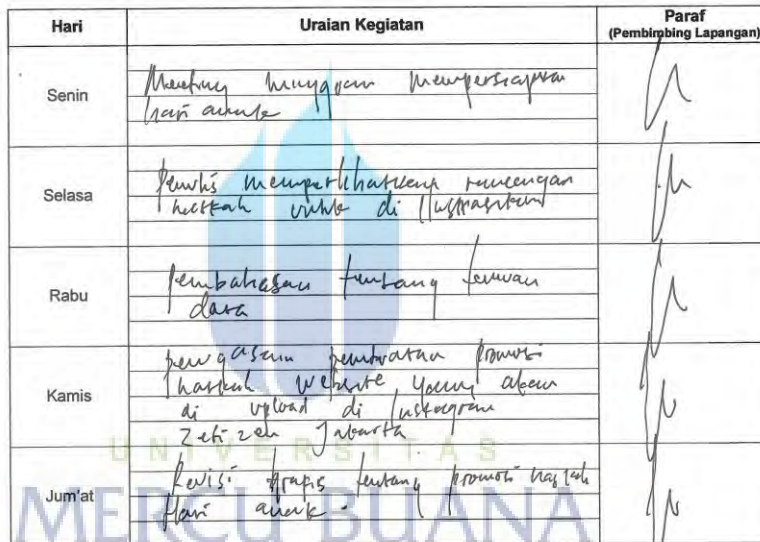 Hari Uraian Kegiatan Paraf
(Pembimbing Lapangan)
Senin
Meeting mingguan mempersiapkan
hari anak
Selasa
Penulis memperlihatkan rancangan
naskah untuk di ilustrasikan
Rabu
Pembahasan tentang temuan
data
Kamis
penugasan pembuatan promosi
naskah website yang akan
di upload di Instagram
Zetizen Jakarta
UNIVERSITAS
Jum'at
Revisi tentang promosi naskah
Hari anak.
MERCU BUANA